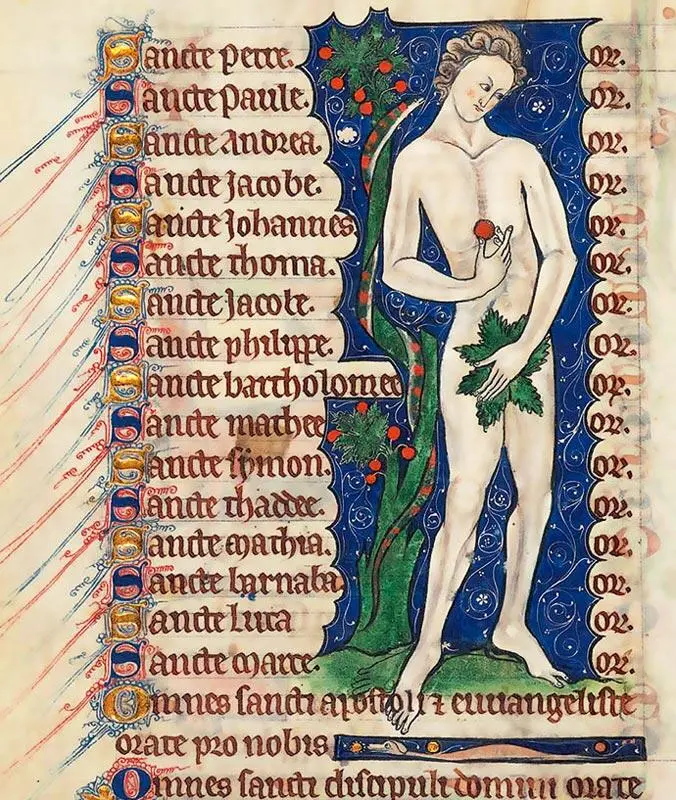 Sancte Petre. or.
Sancte Paule. or.
Sancte Andrea. or.
Sancte Jacobe. or.
Sancte Johannes or.
Sancte thoma. or.
Sancte Jacobe. or.
Sancte philippe. or.
Sancte bartholomee or.
Sancte mathee or.
Sancte symon. or.
Sancte thaddee. or.
Sancte mathia. or.
Sancte barnaba. or.
Sancte luca or.
Sancte marce. or.
Omnes sancti apostoli ⁊ euuangeliste
orate pro nobis.
Omnes sancti discipuli domini orate